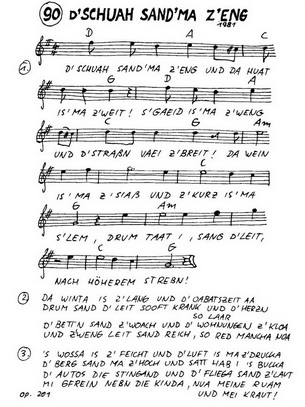 90 D'SCHUAH SAND'MA Z'ENG
1981
D A C
1. D'SCHUAH SAND'MA Z'ENG UND DA HUAT
G D G
IS'MA Z'WEIT! S'GAEID IS'MA Z'WENG
C G Am
UND D'STRAßN VAEI Z'BREIT! DA WEIN
C
IS'MA Z'SIAß UND Z'KURZ IS'MA
G Am
S'LEM, DRUM TAAT I, SANG D'LEIT,
C G
NACH HÖHEREM STREBN!
2. DA WINTA IS Z'LANG UND D'OABATSZEIT AA
DRUM SAND D'LEIT SOOFT KRANK UND D'HERZN
SO LAAR
D'BETT'N SAND Z'WOACH UND D'WOHNUNGEN Z'KLOA
UND Z'WENG LEIT SAND REICH, SO RED MANCHA NOA
3. 'S WOSSA IS Z'FEICHT UND D'LUFT IS MA Z'DRUCKA
D'BERG SAND MA Z'HOCH UND SATT HAB I S BUCKA
D'AUTOS DIE STINGAND UND D'FLIEGA SAND Z'LAUT
MI GFREIN NEBN DIE KINDA, NUA MEINE RUAM
UND MEI KRAUT!
OP. 201